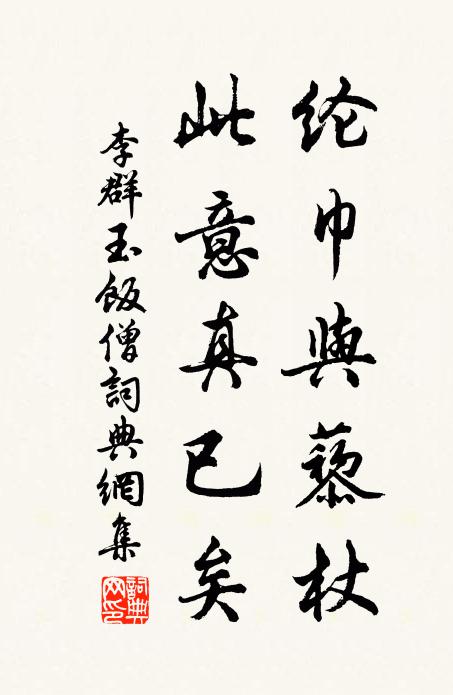 纶巾與藜杖
此意真已矣
李群玉飯僧詞典網集
詞典網印